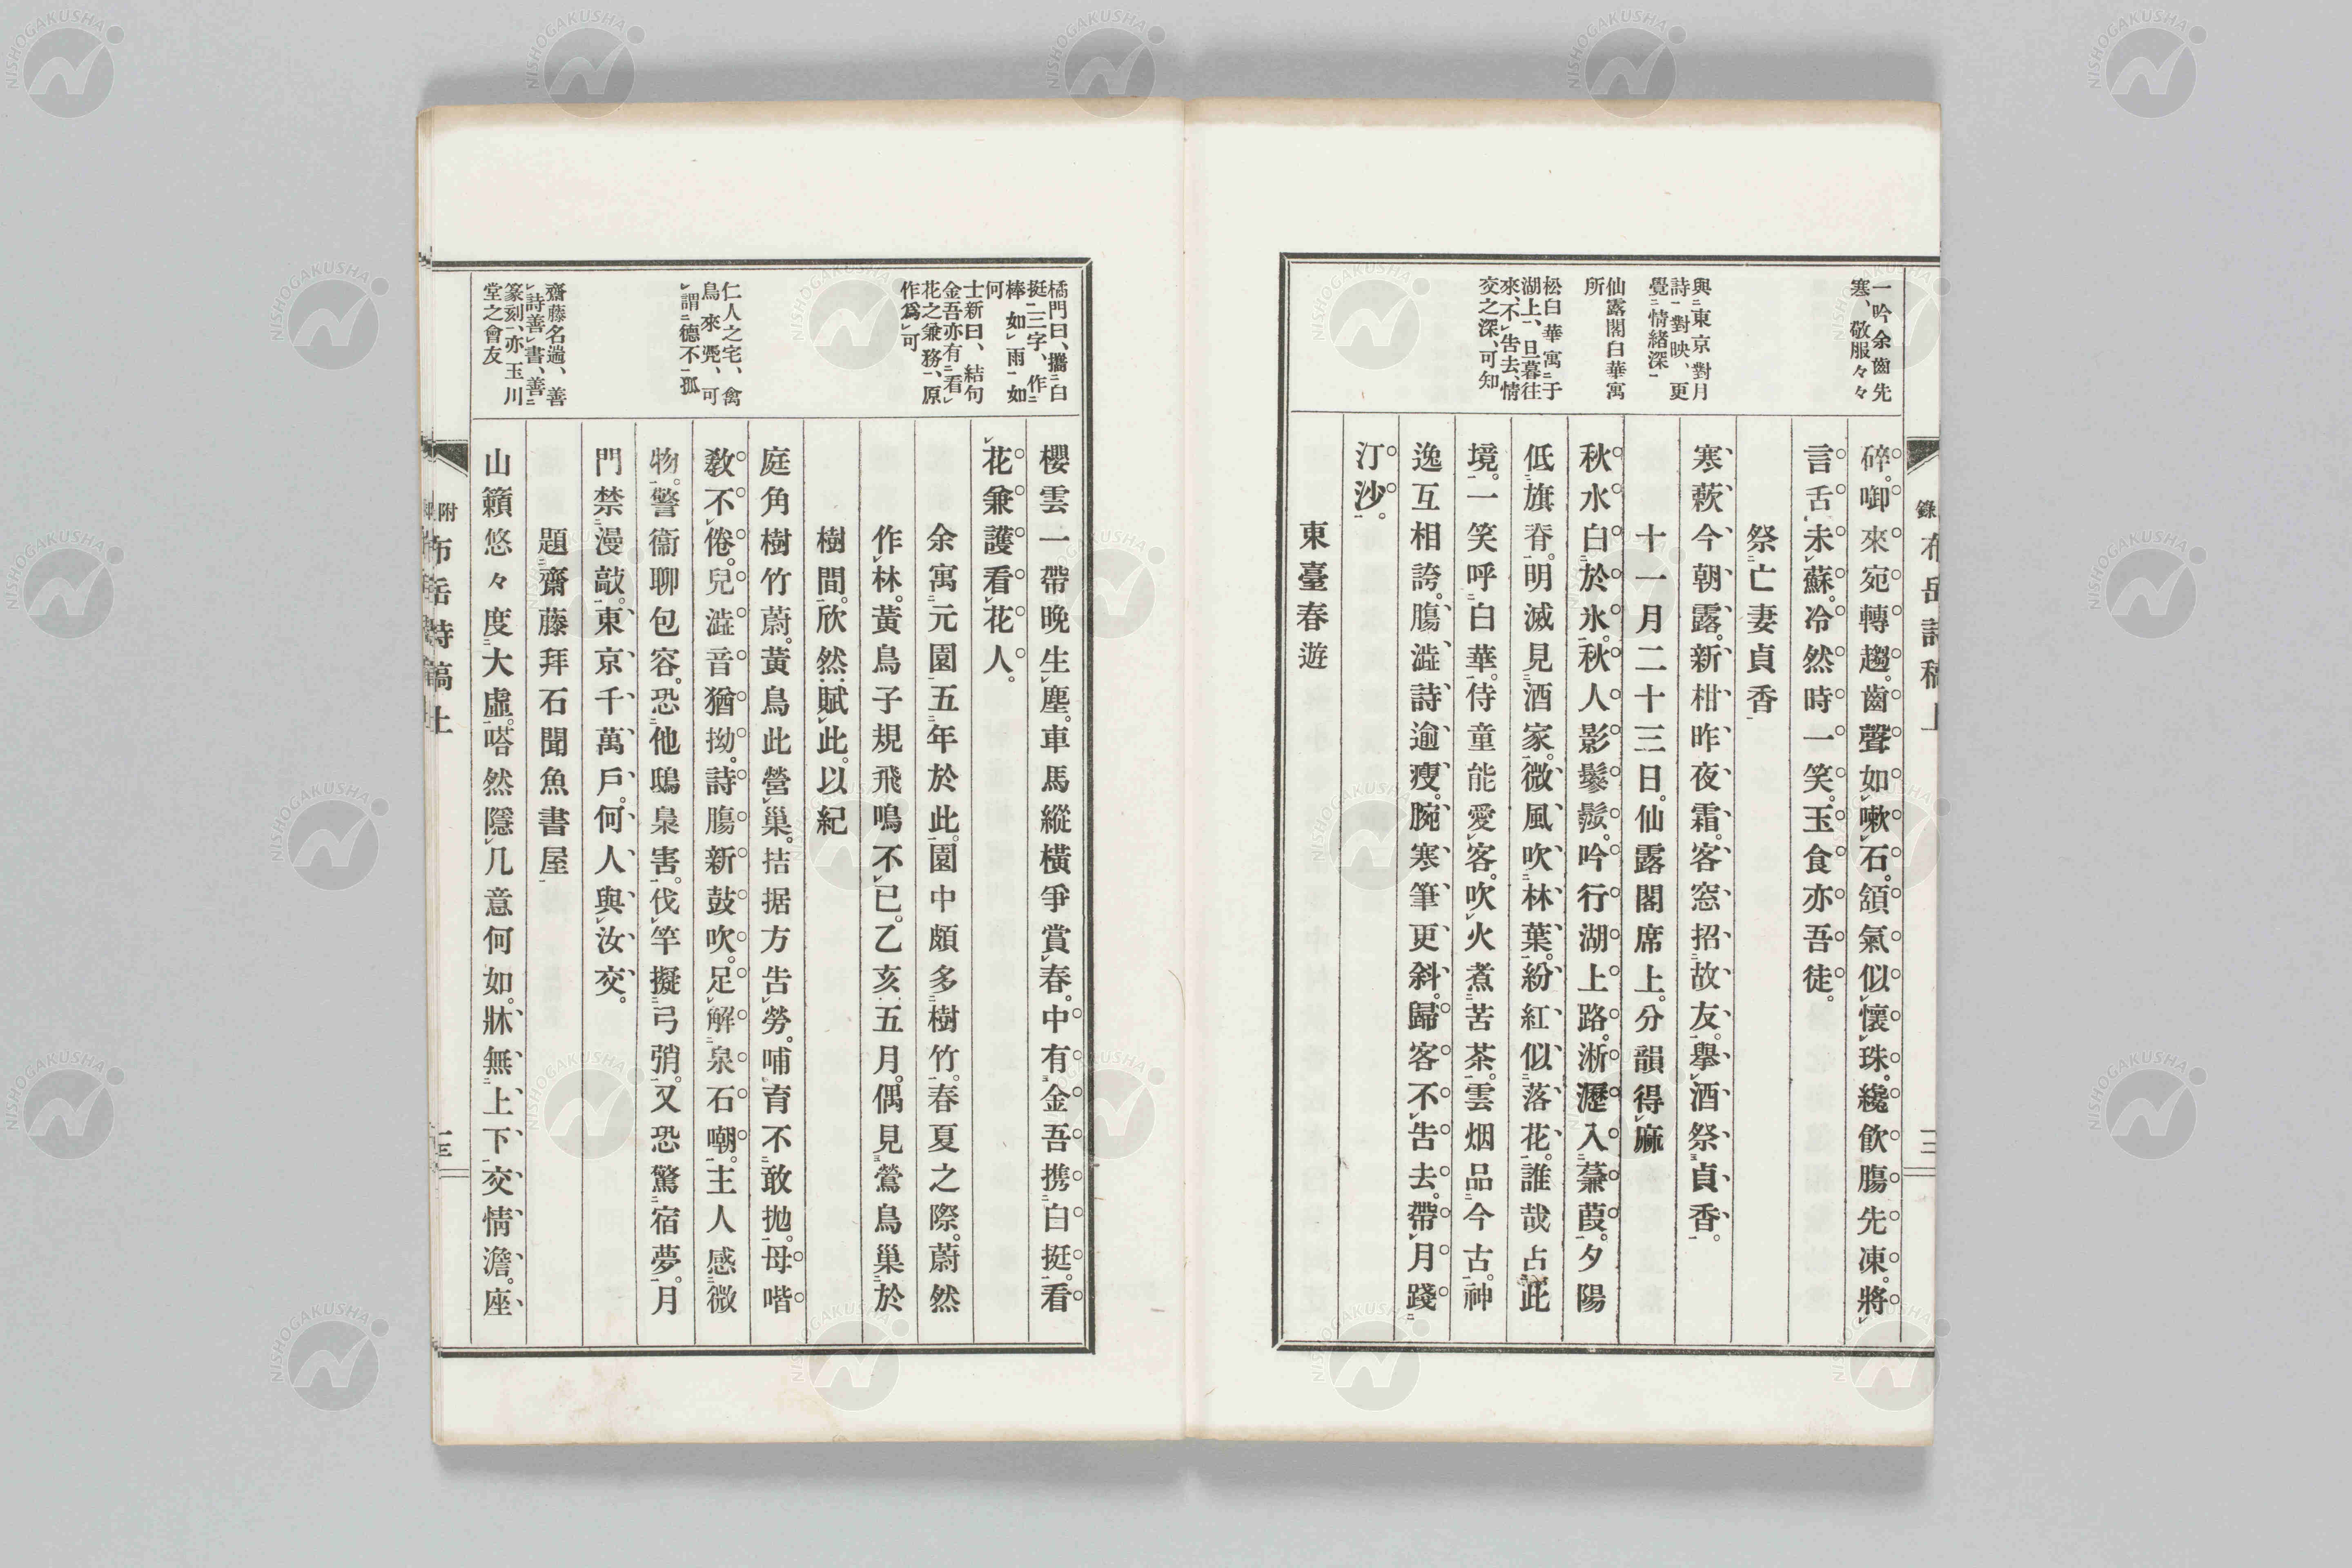 一吟余齒先
寒、敬服々々
與東京對月
詩對映、更
覺情緒深
仙露閣白華寓
所
松白華寓于
湖上、旦暮往
來、不告去、情
交之深、可知
碎。啣來宛轉趨。齒聲如嗽石。頷氣似懷珠。纔飮膓先凍。將
言舌未蘇。冷然時一笑。玉食亦吾徒。
祭亡妻貞香
寒萩今朝露。新柑昨夜霜。客窓招故友。擧酒祭貞香。
十一月二十三日。仙露閣席上。分韻得麻
秋水白於氷。秋人影鬖髿。吟行湖上路。淅瀝入蒹葭。夕陽
低旗脊。明滅見酒家。微風吹林葉。紛紅似落花。誰哉占此
境。一笑呼白華。侍童能愛客。吹火煮苦茶。雲烟品今古。神
逸互相誇。膓澁詩逾瘦。腕寒筆更斜。歸客不告去。帶月踐
汀沙。
東臺春遊
錄 布岳詩稿 上
三
橘門曰、攜白
挺三字、作
棒如雨如
何
士新曰、結句
金吾亦有看
花之兼務、原
作爲可
仁人之宅、禽
鳥來凭、可
謂德不孤
齋藤名遄、善
詩善書、善
篆刻、亦玉川
堂之會友
櫻雲一帶晚生塵。車馬縱橫爭賞春。中有金吾携白挺。看
花兼護看花人。
余寓元園五年於此。園中頗多樹竹。春夏之際。蔚然
作林。黃鳥子規飛鳴不已。乙亥五月。偶見鶯鳥巢於
樹間。欣然賦此。以紀
庭角樹竹蔚。黃鳥此營巢。拮据方告勞。哺育不敢抛。母喈
敎不倦。兒澁音猶拗。詩膓新鼓吹。足解泉石嘲。主人感微
物。警衞聊包容。恐他鴟梟害。伐竿擬弓弰。又恐驚宿夢。月
門禁漫敲。東京千萬戶。何人與汝交。
題齋藤拜石聞魚書屋
山籟悠々度大虛。嗒然隱几意何如。牀無上下交情澹。座
附 布岳詩稿 上